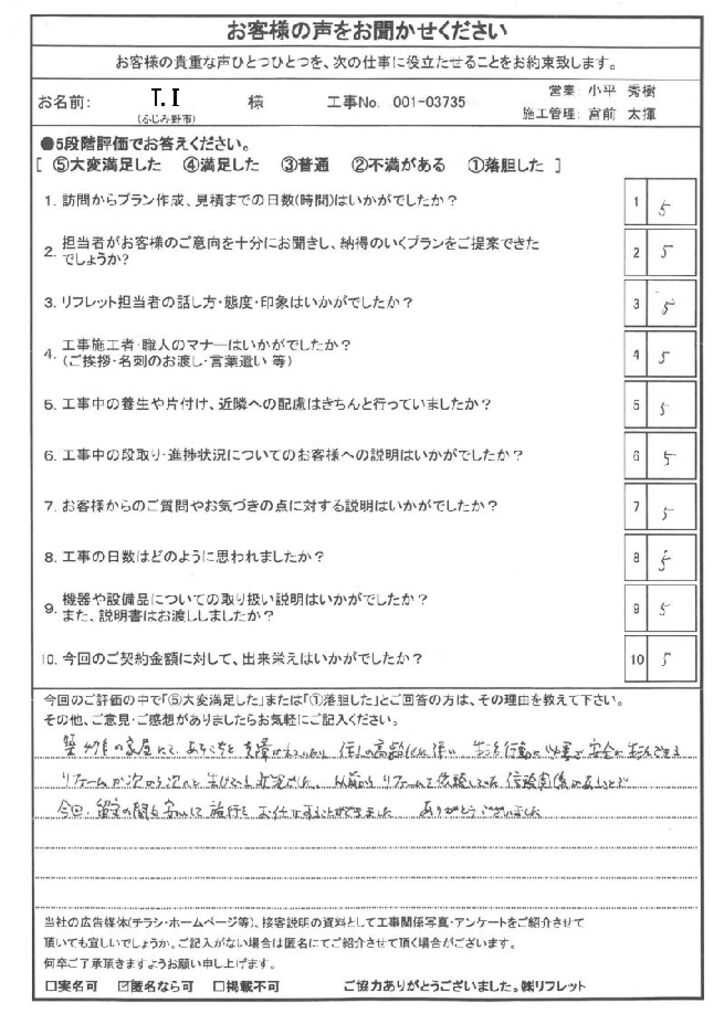 お客様の声をお聞かせください
お客様の貴重な声ひとつひとつを、次の仕事に役立たせることをお約束致します。
お名前: T.I 様 工事No. 001-03735 営業: 小平 秀樹
(ふじみ野市) 施工管理: 宮前 太揮
●5段階評価でお答えください。
[ ⑤大変満足した ④満足した ③普通 ②不満がある ①落胆した ]
1. 訪問からプラン作成、見積までの日数(時間)はいかがでしたか? 1 5
2. 担当者がお客様のご意向を十分にお聞きし、納得のいくプランをご提案できた
でしょうか? 2 5
3. リフレット担当者の話し方・態度・印象はいかがでしたか? 3 5
4. 工事施工者・職人のマナーはいかがでしたか?
(ご挨拶・名刺のお渡し・言葉遣い 等) 4 5
5. 工事中の養生や片付け、近隣への配慮はきちんと行っていましたか? 5 5
6. 工事中の段取り・進捗状況についてのお客様への説明はいかがでしたか? 6 5
7. お客様からのご質問やお気づきの点に対する説明はいかがでしたか? 7 5
8. 工事の日数はどのように思われましたか? 8 5
9. 機器や設備品についての取り扱い説明はいかがでしたか?
また、説明書はお渡ししましたか? 9 5
10. 今回のご契約金額に対して、出来栄えはいかがでしたか? 10 5
今回のご評価の中で「⑤大変満足した」または「①落胆した」とご回答の方は、その理由を教えて下さい。
その他、ご意見・ご感想がありましたらお気軽にご記入ください。
の家屋にて、あちこちと支障が 住人の高齢化に伴い 生活行動に必要で安全に生活できる
リフォームが次から次へと 状況でした。以前からリフォームを依頼していた信頼関係があるので
今回、留守の間も安心して施行をお任せすることができました ありがとうございました
当社の広告媒体(チラシ・ホームページ等)、接客説明の資料として工事関係写真・アンケートをご紹介させて
頂いても宜しいでしょうか。ご記入がない場合は匿名にてご紹介させて頂く場合がございます。
何卒ご了承頂きますようお願い申し上げます。
□実名可 ☑匿名なら可 □掲載不可 ご協力ありがとうございました。㈱リフレット